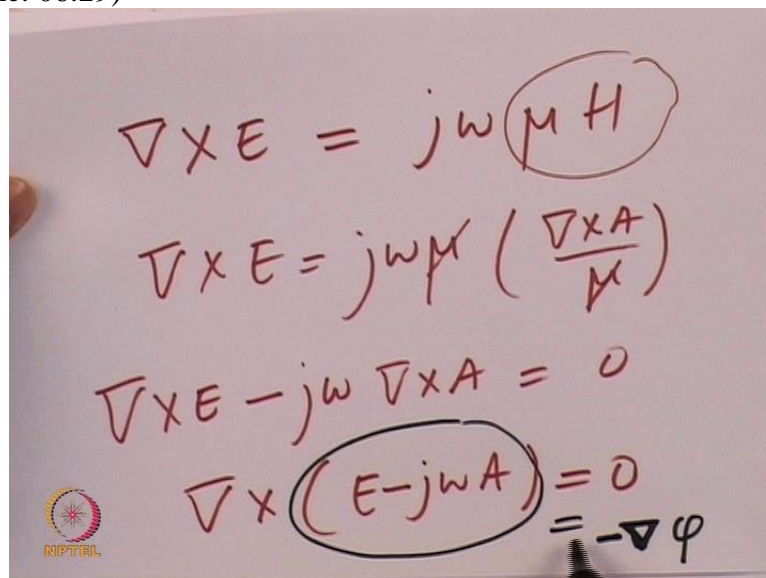 ∇×E = jω μ H
∇×E = jωμ ( ∇×A / μ )
∇×E − jω ∇×A = 0
∇×( E−jωA ) = 0
= −∇φ
NPTEL